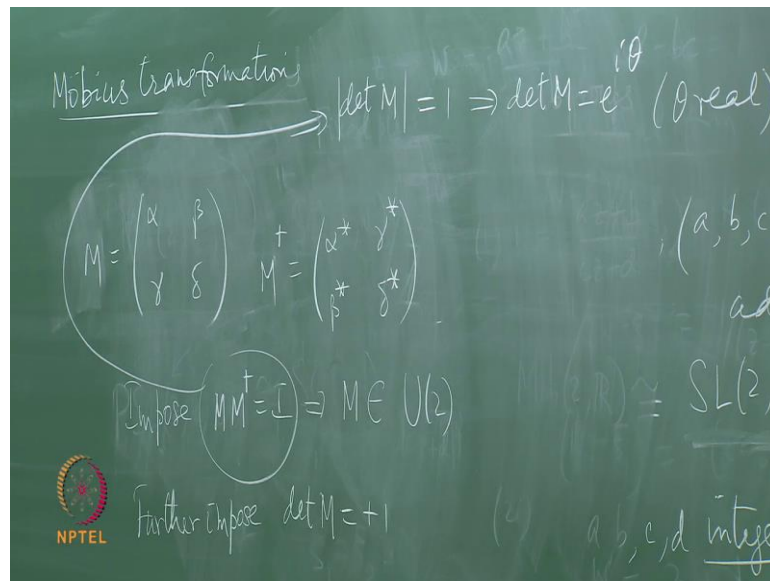 Möbius transformations
|det M| = 1 ⇒ det M = e^{iθ} (θ real)
M = (α β
γ δ)
M† = (α* γ*
β* δ*)
(a, b, c
ad
Impose MM† = I ⇒ M ∈ U(2)
≃ SL(2,
Further impose det M = +1
a, b, c, d integ
NPTEL